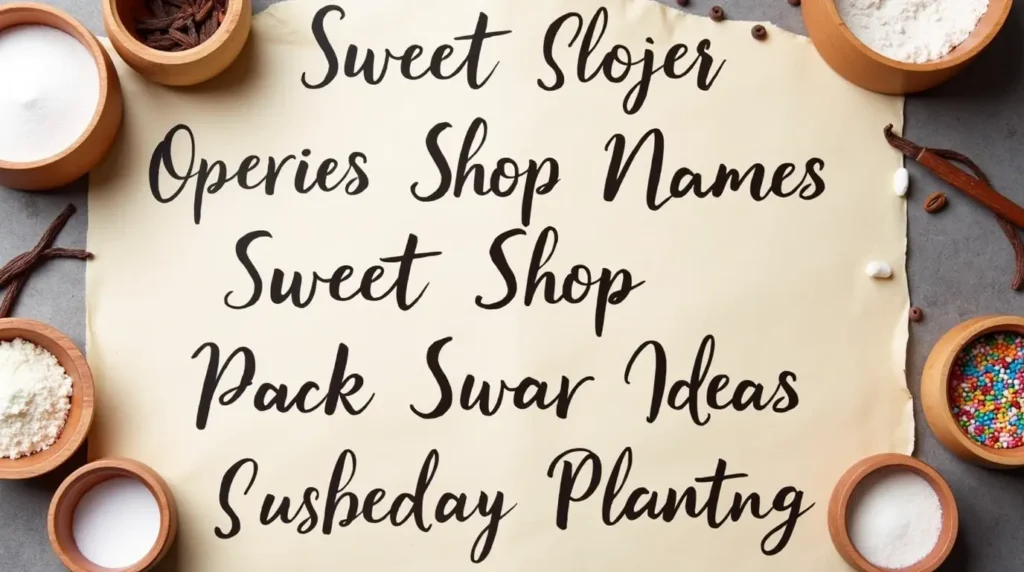 Sweet Slojer
Operies Shop Names
Sweet Shop
Pack Swar Ideas
Susbeday Plantng